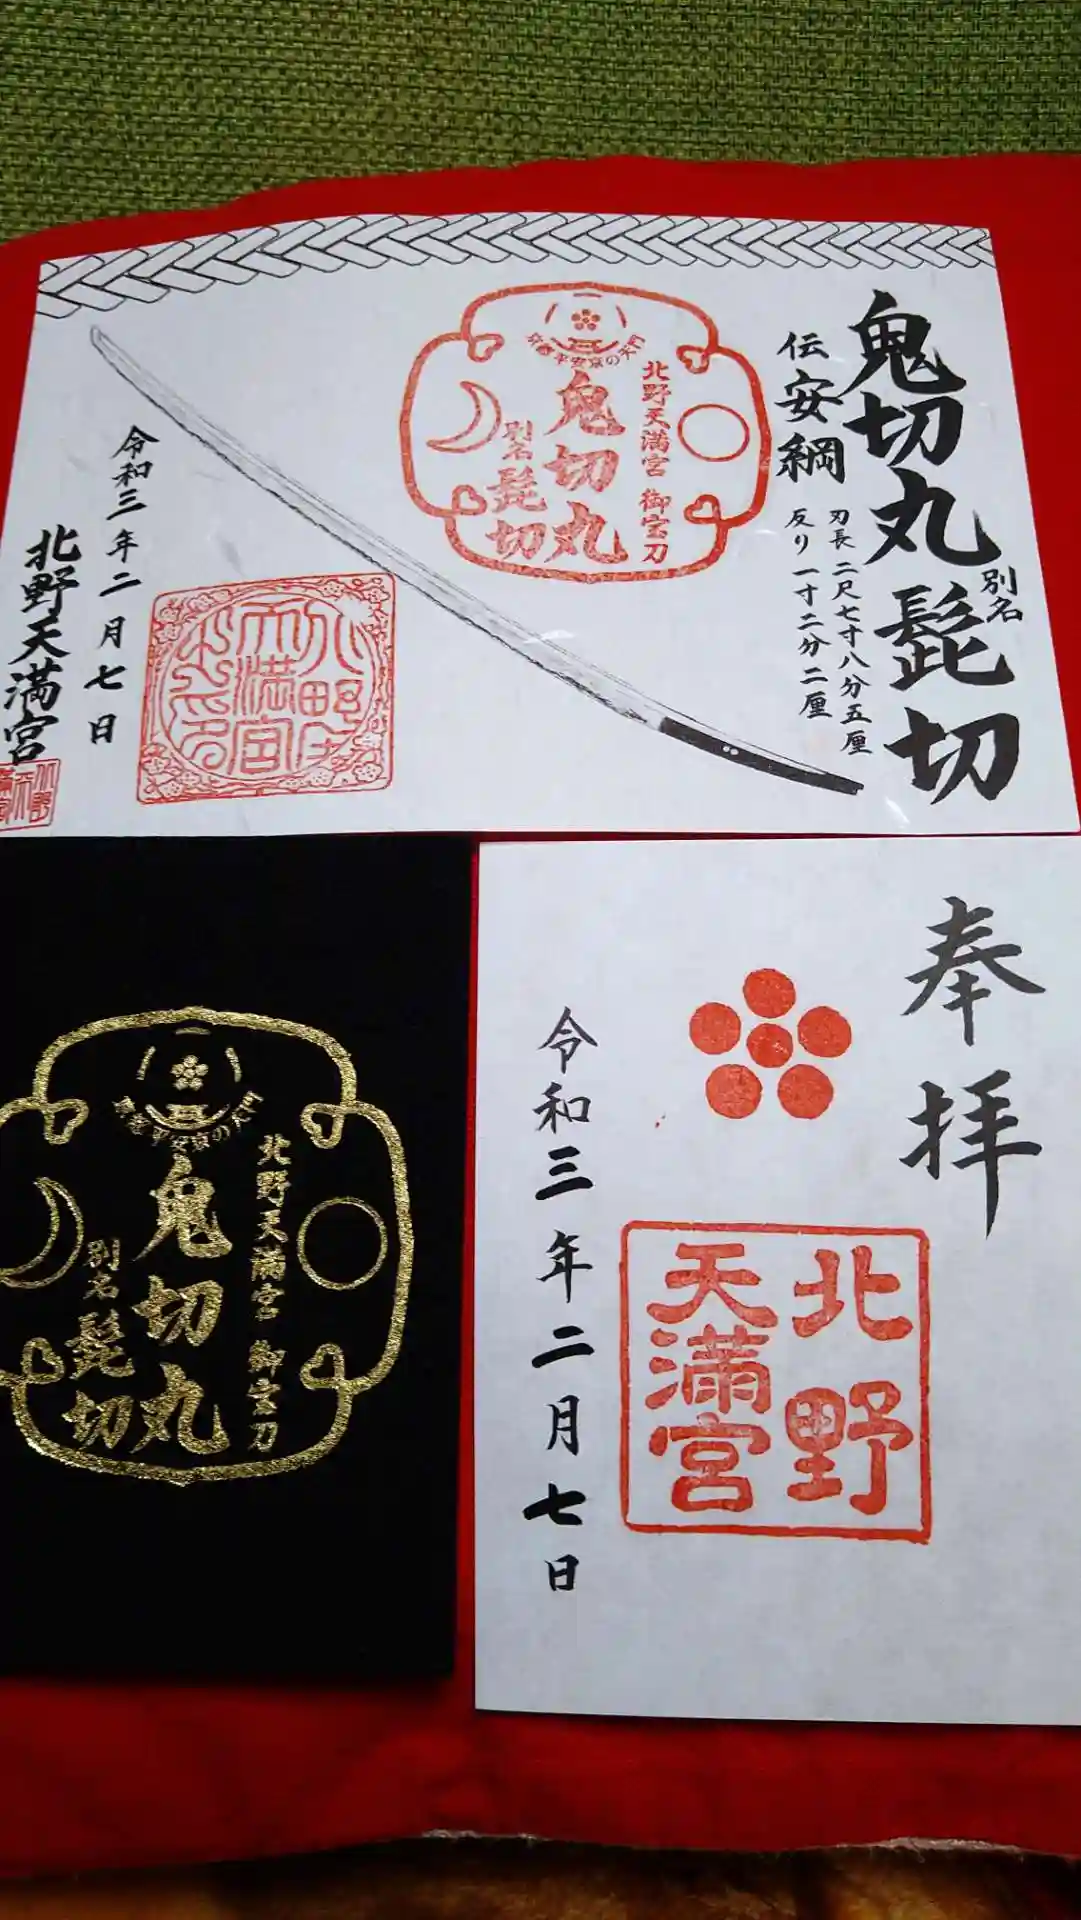 鬼切丸
別名
髭切
伝安綱
刃長 二尺七寸八分五厘
反り 一寸二分二厘
京都平安京の天門
北野天満宮 御宝刀
鬼切丸
別名
髭切
令和三年二月七日
北野天満宮
平安京の天門
北野天満宮 御宝刀
鬼切丸
別名
髭切
奉拝
北野
天満宮
令和三年二月七日